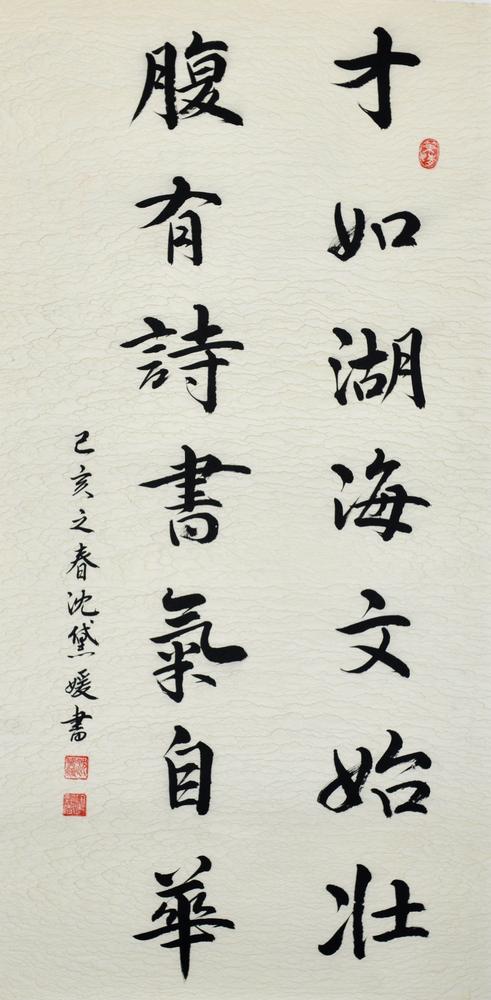 才如湖海文始壯
腹有詩書氣自華
己亥之春沈黛媛書